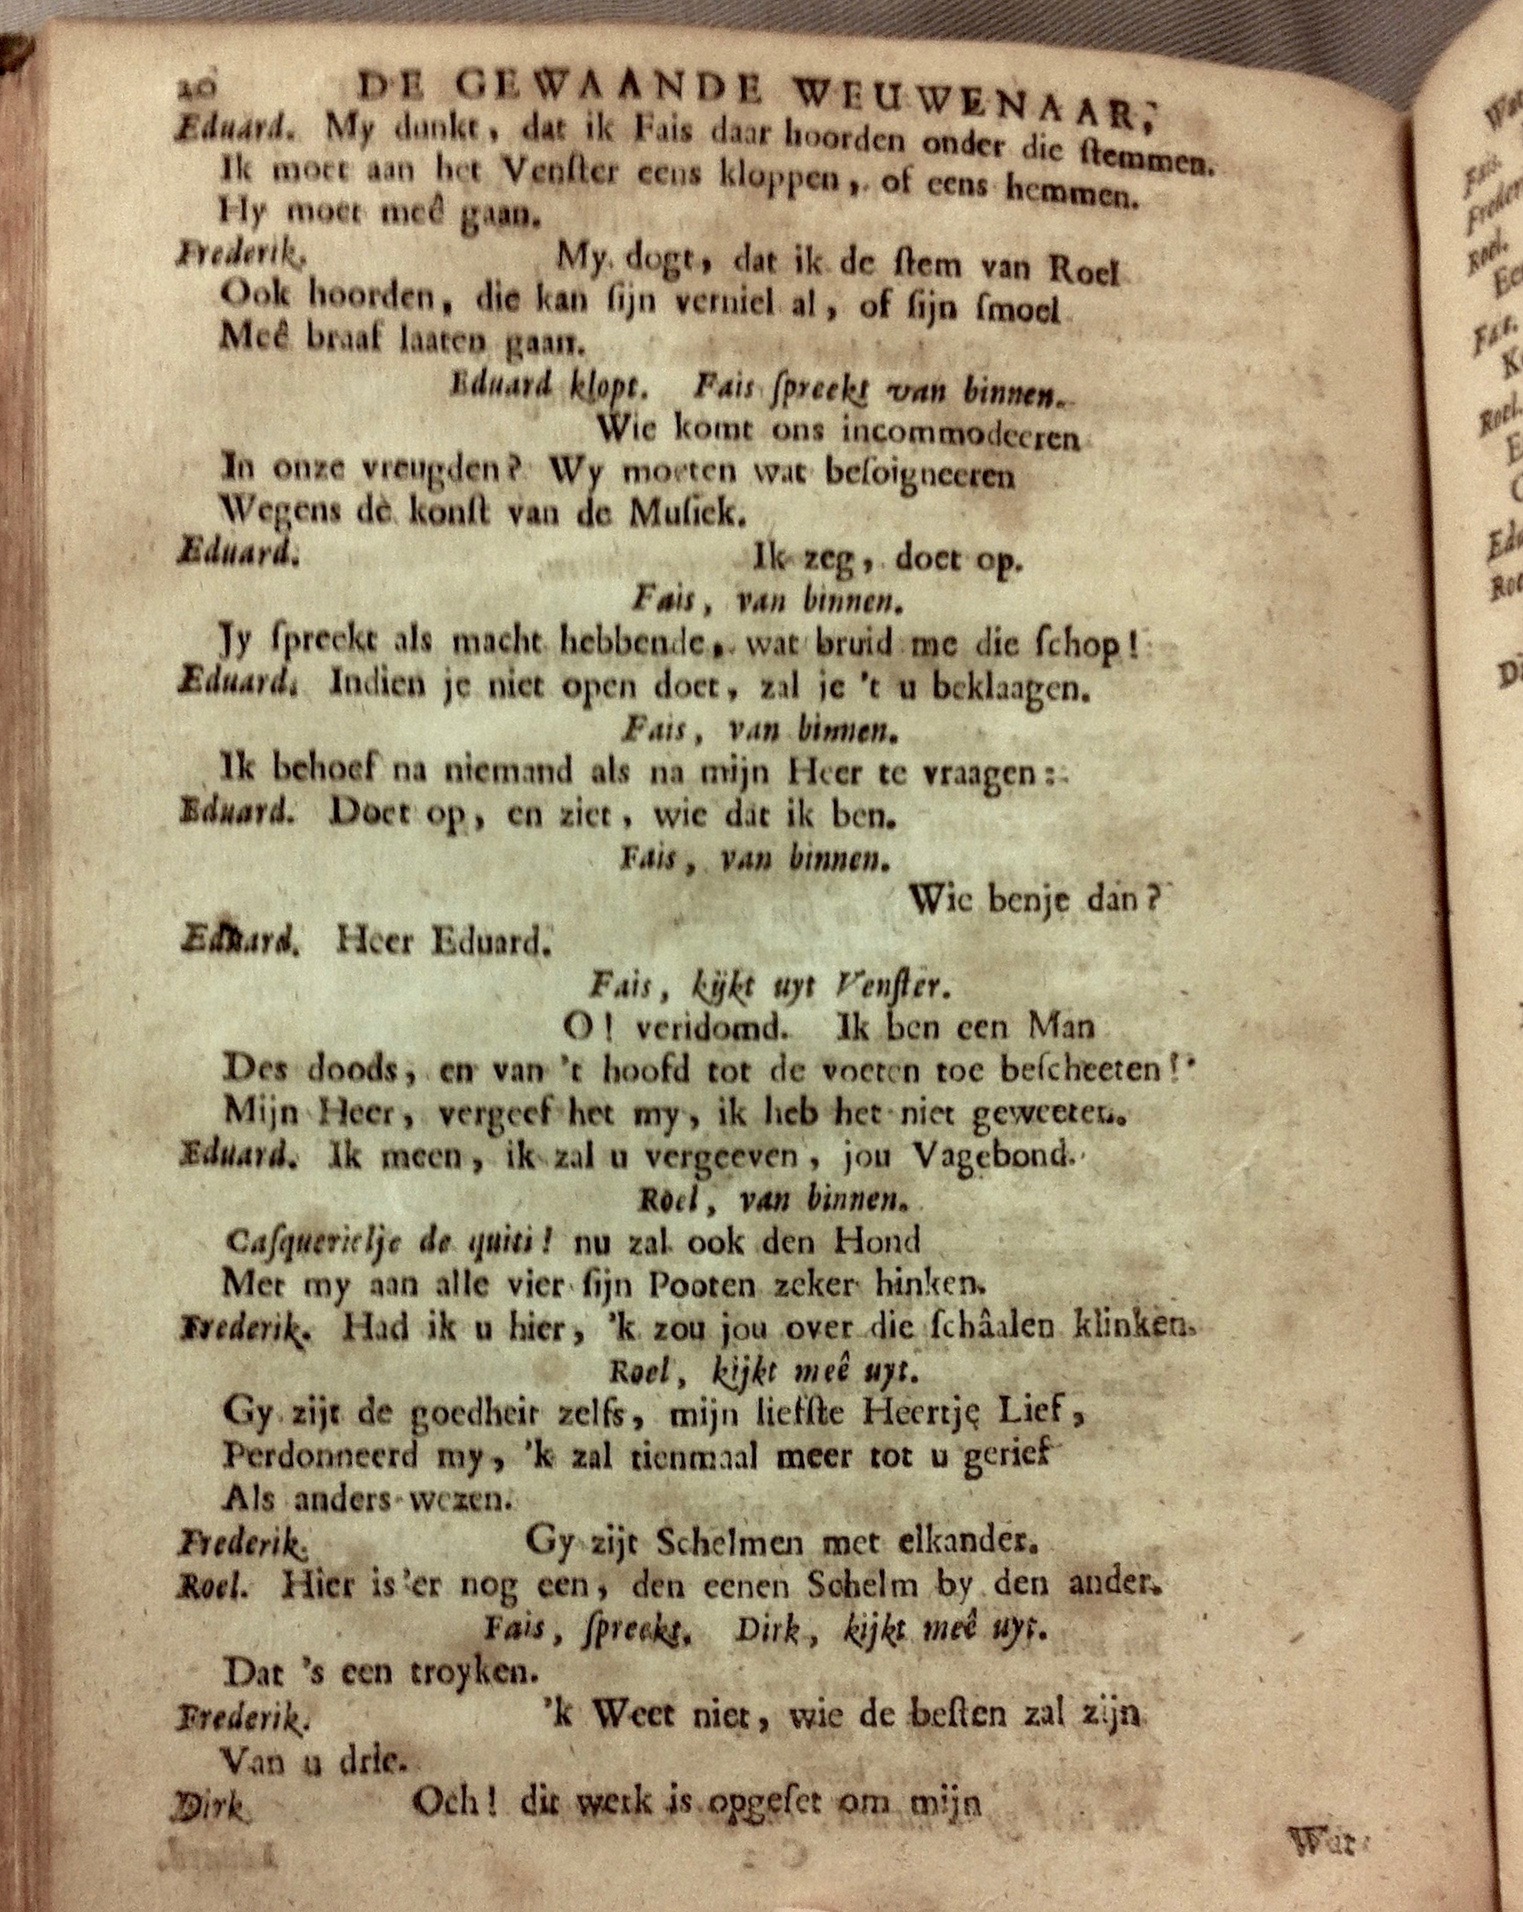 20 DE GEWAANDE WEUWENAAR,
Eduard. My dunkt, dat ik Fais daar hoorden onder die ſtemmen.
Ik moet aan het Venſter eens kloppen, of eens hemmen.
Hy moet meê gaan.
Frederik. My dogt, dat ik de ſtem van Roel
Ook hoorden, die kan ſijn verniel al, of ſijn ſmoel
Meê braaf laaten gaan.
Eduard klopt. Fais ſpreekt van binnen.
Wie komt ons incommodeeren
In onze vreugden? Wy moeten wat beſoigneeren
Wegens de konſt van de Muſiek.
Eduard. Ik zeg, doet op.
Fais, van binnen.
Jy ſpreekt als macht hebbende, wat bruid me die ſchop!
Eduard. Indien je niet open doet, zal je 't u beklaagen.
Fais, van binnen.
Ik behoef na niemand als na mijn Heer te vraagen:
Eduard. Doet op, en ziet, wie dat ik ben.
Fais, van binnen.
Wie benje dan?
Eduard. Heer Eduard.
Fais, kijkt uyt Venſter.
O! veridomd. Ik ben een Man
Des doods, en van 't hoofd tot de voeten toe beſcheeten!
Mijn Heer, vergeef het my, ik heb het niet geweeten.
Eduard. Ik meen, ik zal u vergeeven, jou Vagebond.
Roel, van binnen.
Caſquerielje de quiti! nu zal ook den Hond
Met my aan alle vier ſijn Pooten zeker hinken.
Frederik. Had ik u hier, 'k zou jou over die ſchâalen klinken.
Roel, kijkt meê uyt.
Gy zijt de goedheit zelfs, mijn liefſte Heertje Lief,
Perdonneerd my, 'k zal tienmaal meer tot u gerief
Als anders wezen.
Frederik. Gy zijt Schelmen met elkander.
Roel. Hier is 'er nog een, den eenen Schelm by den ander.
Fais, ſpreekt. Dirk, kijkt meê uyt.
Dat 's een troyken.
Frederik. 'k Weet niet, wie de beſten zal zijn
Van u drie.
Dirk Och! dit werk is opgeſet om mijn
Wat